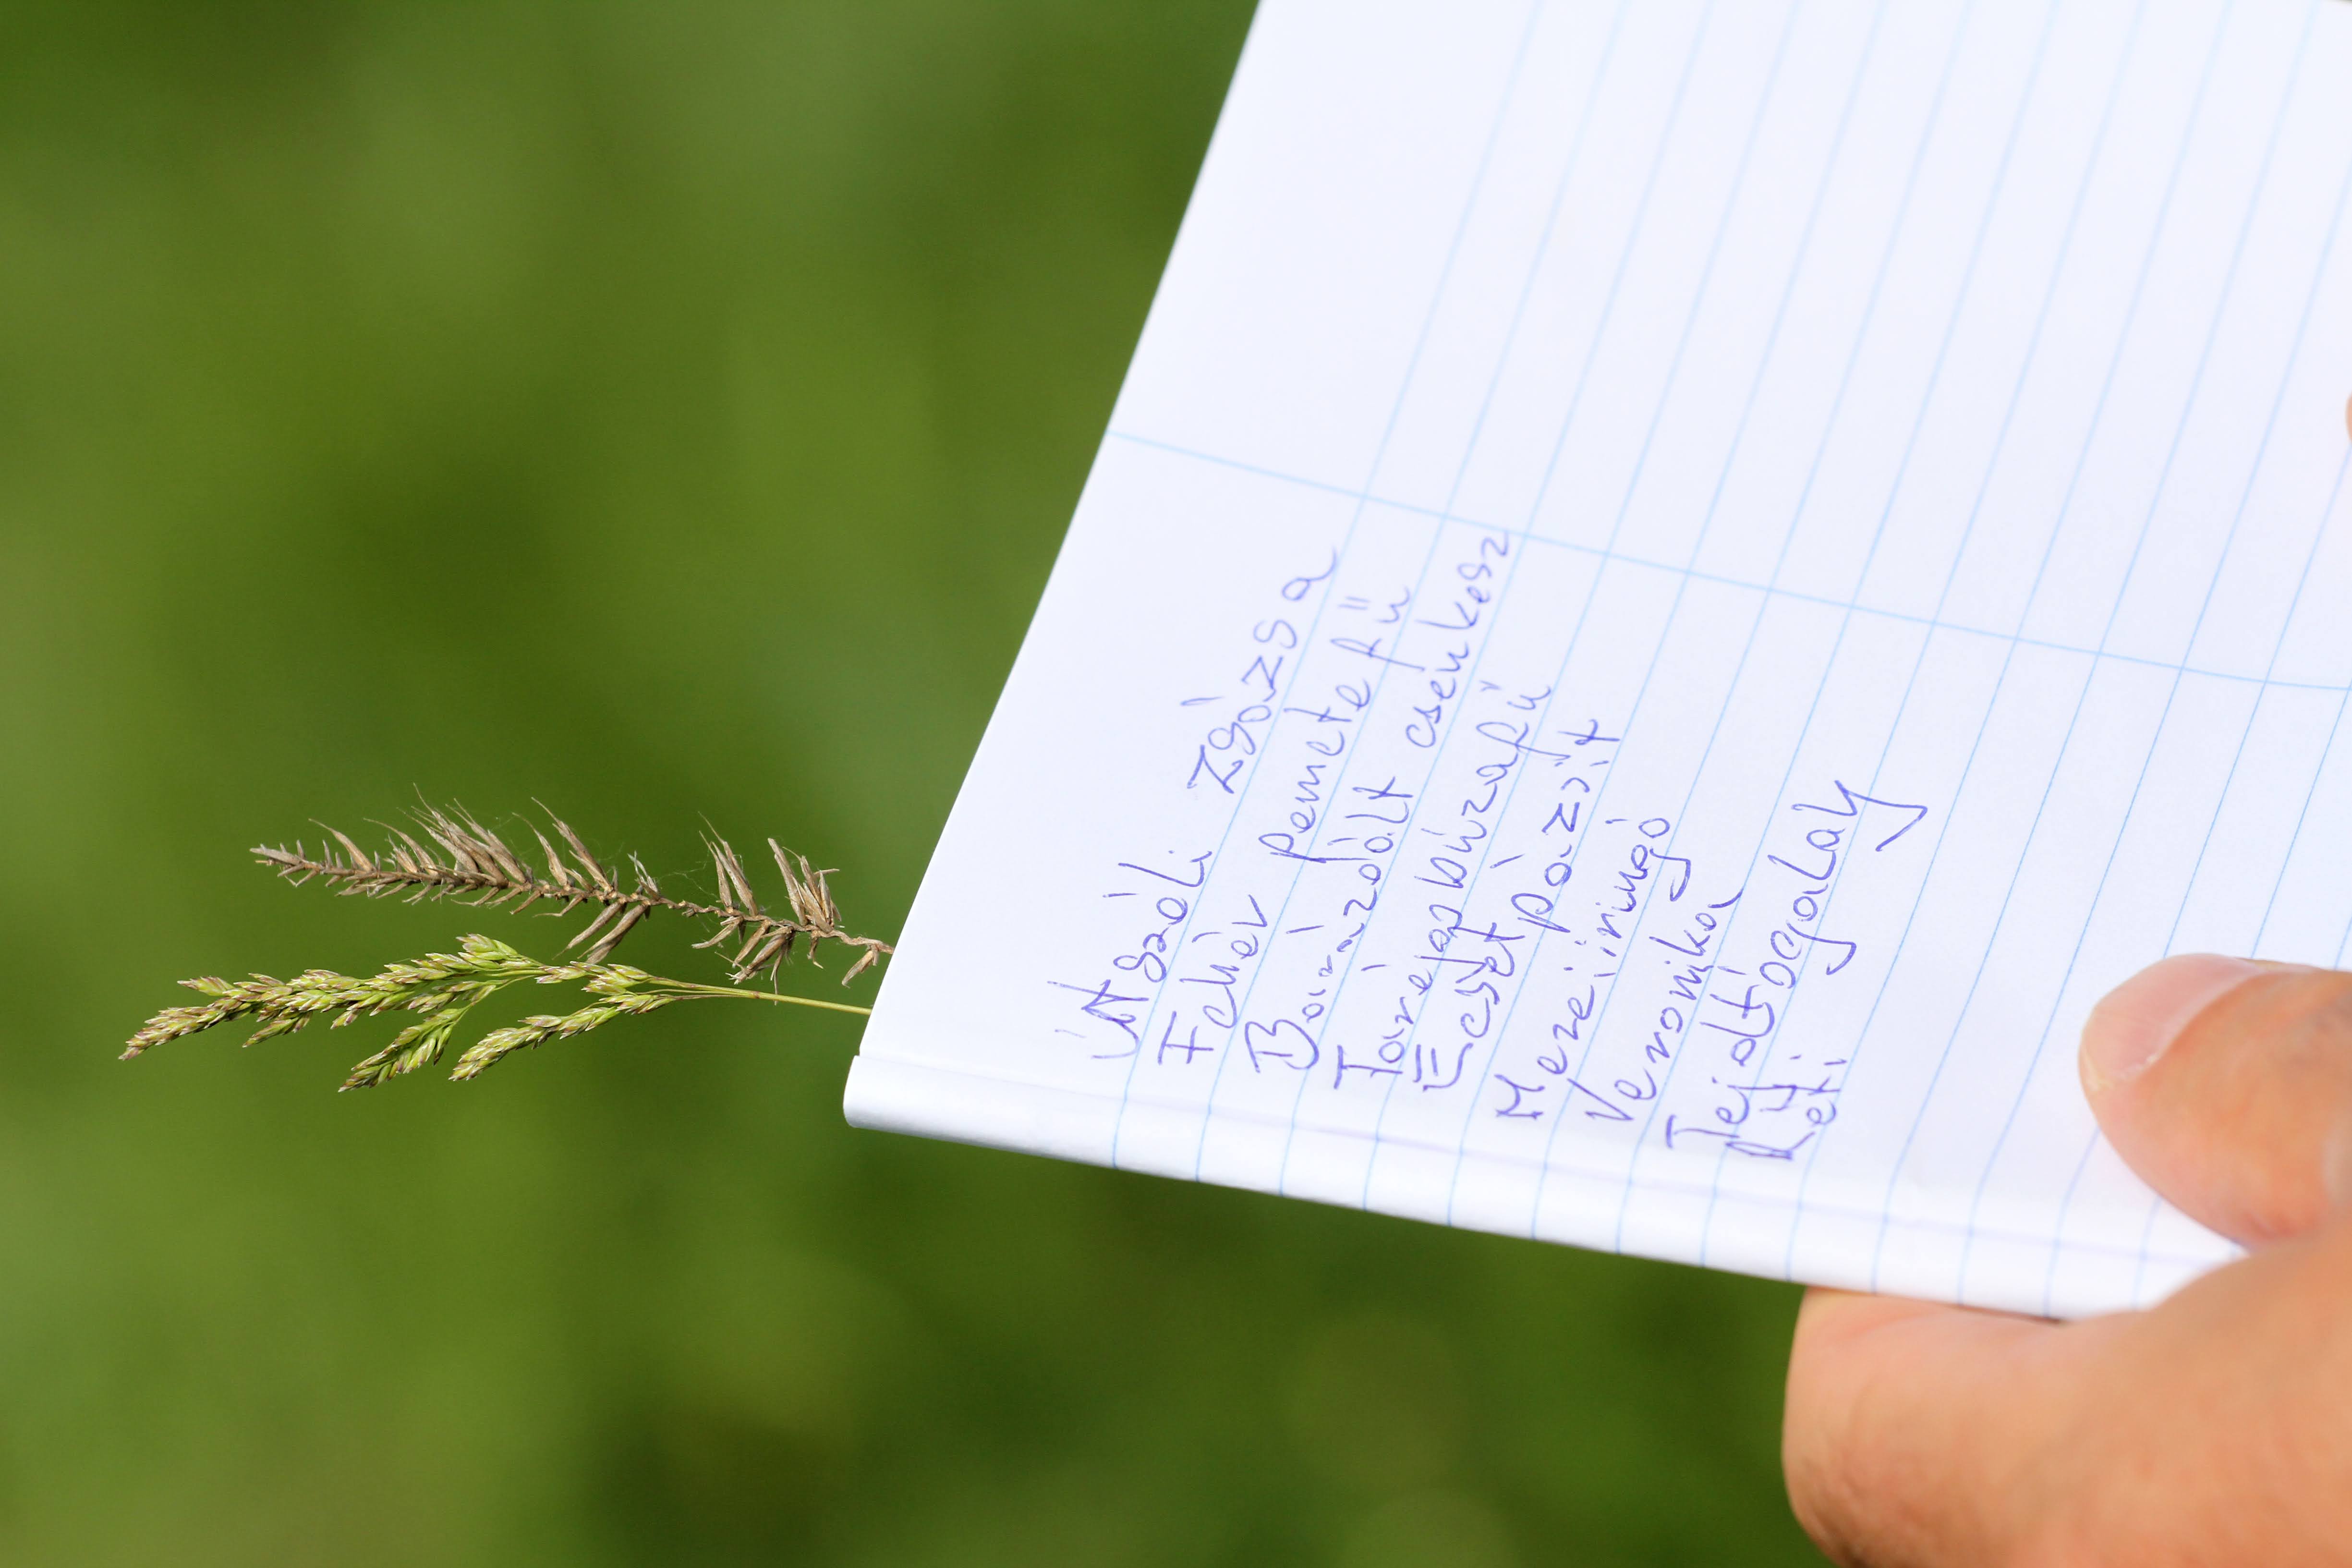 Útszéli zsázsa
Fehér pemetefű
Barázdált csenkesz
Taréjos búzafű
Ecset pázsit
Mezei iringó
Veronika
Tejoltógalaj
Réti